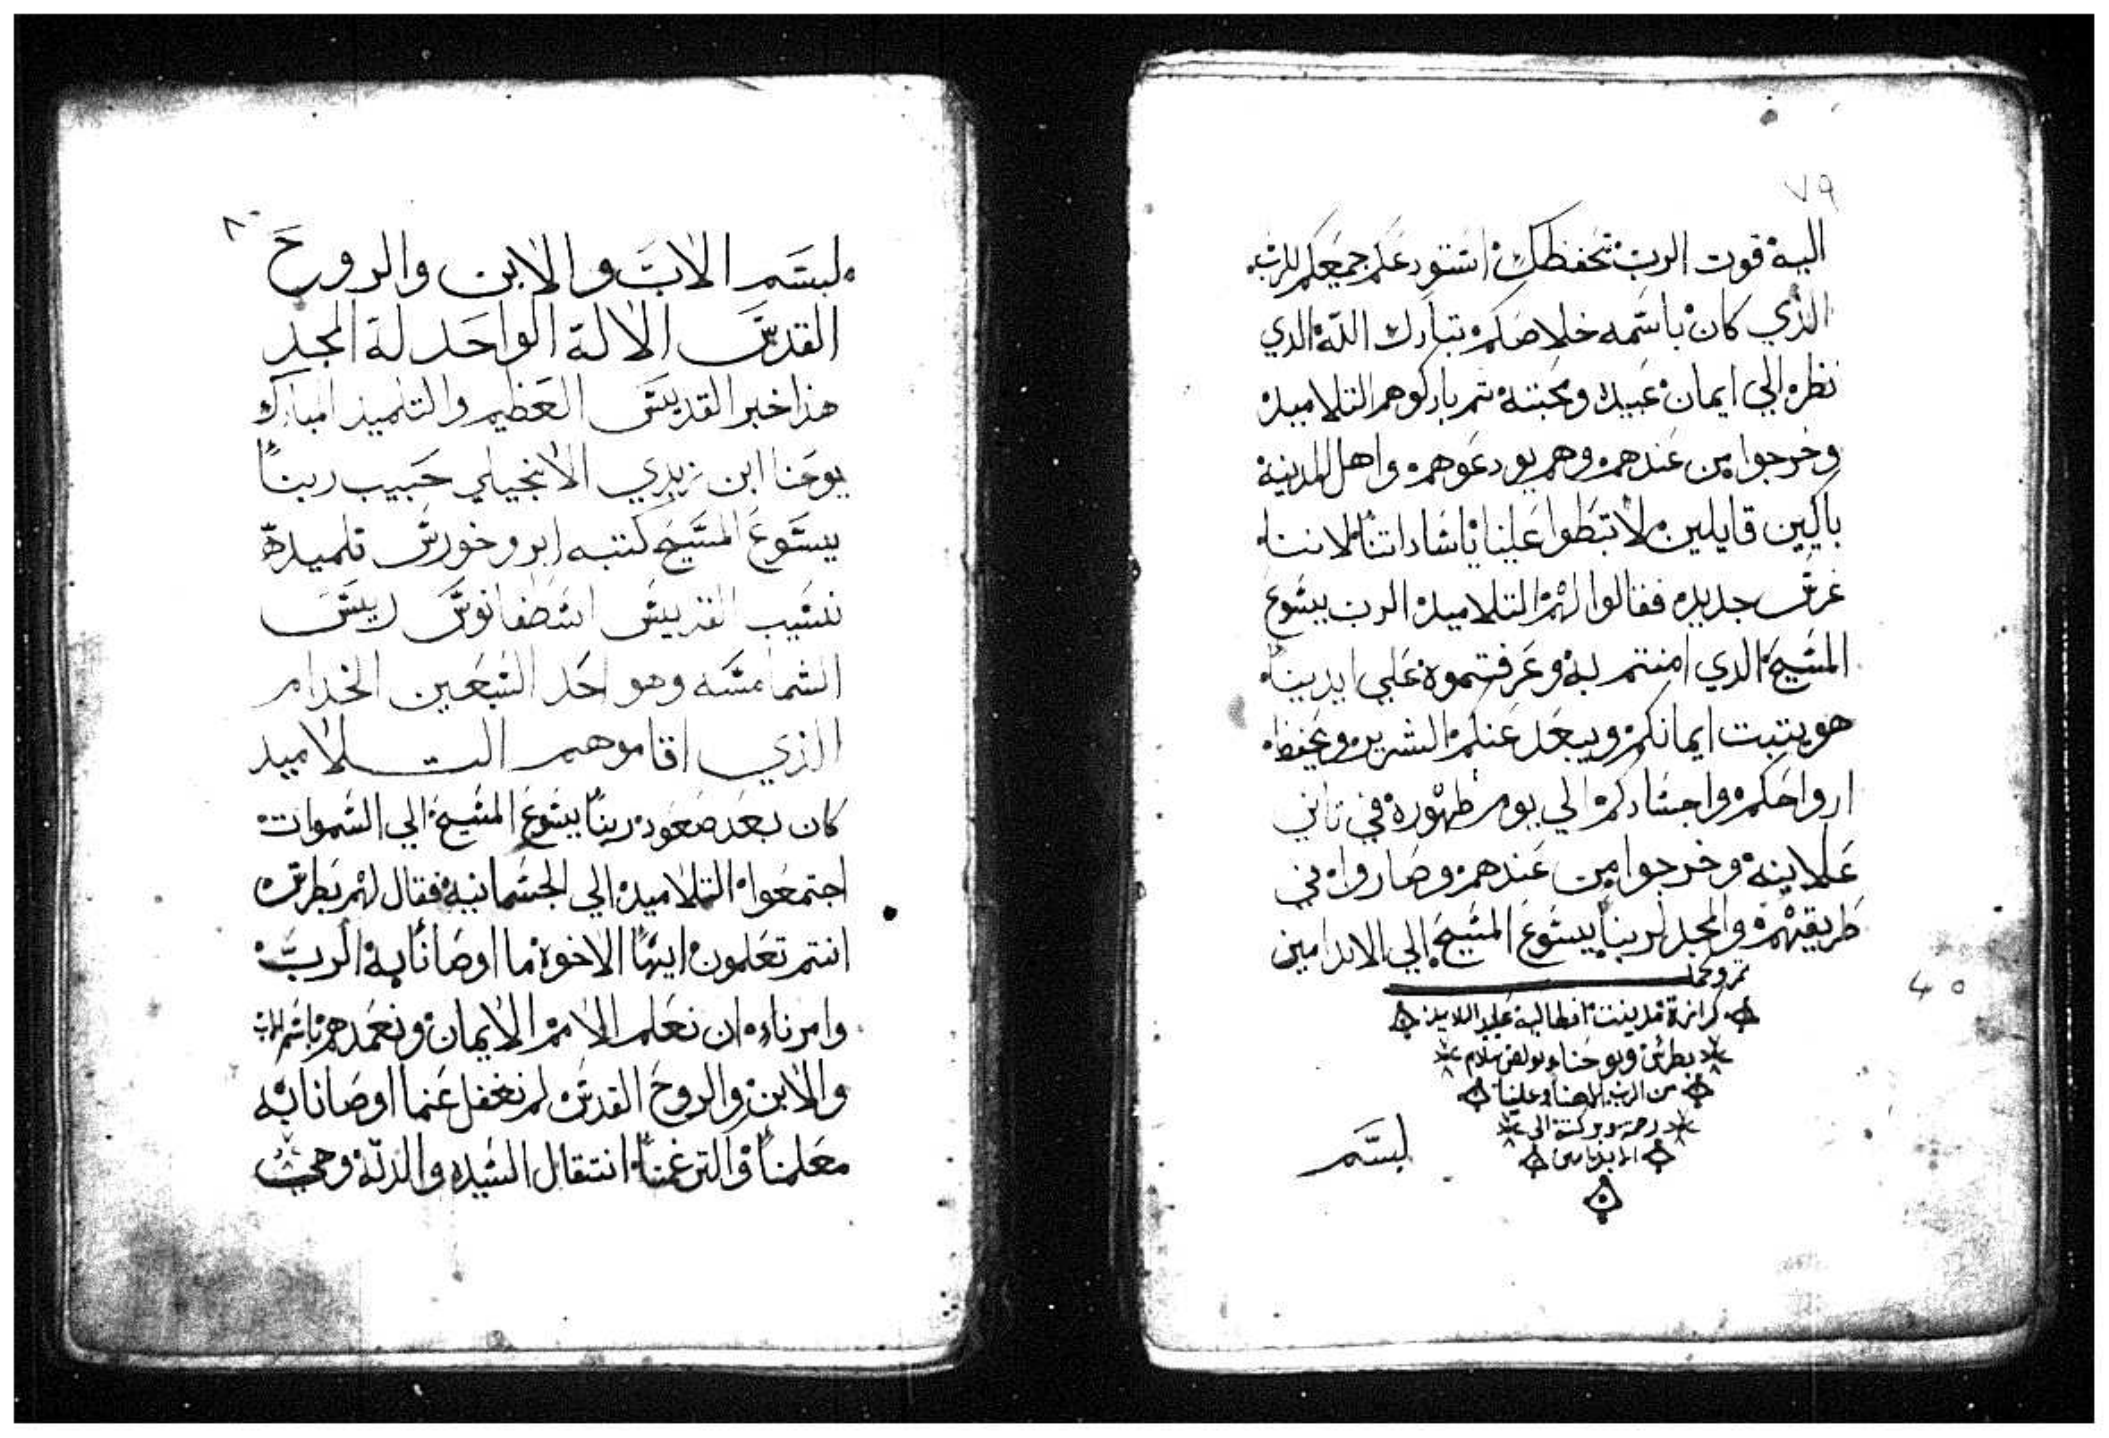 ٧٩
اليه قوت الرب تحفظك استودعكم جميعكم للرب
الذي كان باسمه خلاصكم تبارك الله الدي
نظر الي ايمان عبيده ومحبته تم باركوهم التلاميد
وخرجوا من عندهم وهم يودعوهم واهل المدينة
باكيين قايلين لا تبطوا علينا يا ساداتنا لاننا
غرس جديد فقالوا لهم التلاميد الرب يسوع
المسيح الدي امنتم به وعرفتموه علي ايدينا
هو يتبت ايمانكم ويبعد عنكم الشرير ويحفظ
ارواحكم واجسادكم الي يوم ظهوره في تاني
علانيه وخرجوا من عندهم وصاروا في
طريقهم والمجد لربنا يسوع المسيح الي الابد امين
كرازة مدينت انطاليه علي يد
بطرس ويوحنا وبولص سلام
من الرب الاهنا وعلينا
رحمته وبركته الي
الابد امين
٤٥
لبسم
٨٠
لبسم الاب والابن والروح
القدس الاله الواحد له المجد
هذا خبر القديس العظيم والتلميذ المبارك
يوحنا ابن زبدي الانجيلي حبيب ربنا
يسوع المسيح كتبه ابروخورس تلميده
نسيب القديس اسطفانوس رييس
الشمامسه وهو احد السبعين الخدام
الذي اقاموهم التلاميد
كان بعد صعود ربنا يسوع المسيح الي السموات
اجتمعوا التلاميد الي الجسمانيه فقال لهم بطرس
انتم تعلمون ايها الاخوة ما اوصانا به الرب
وامرنا ان نعلم الامم الايمان ونعمدهم باسم الاب
والابن والروح القدس لم نغفل عنما اوصانا به
معلمنا والترغمنا انتقال السيده والدته وهي